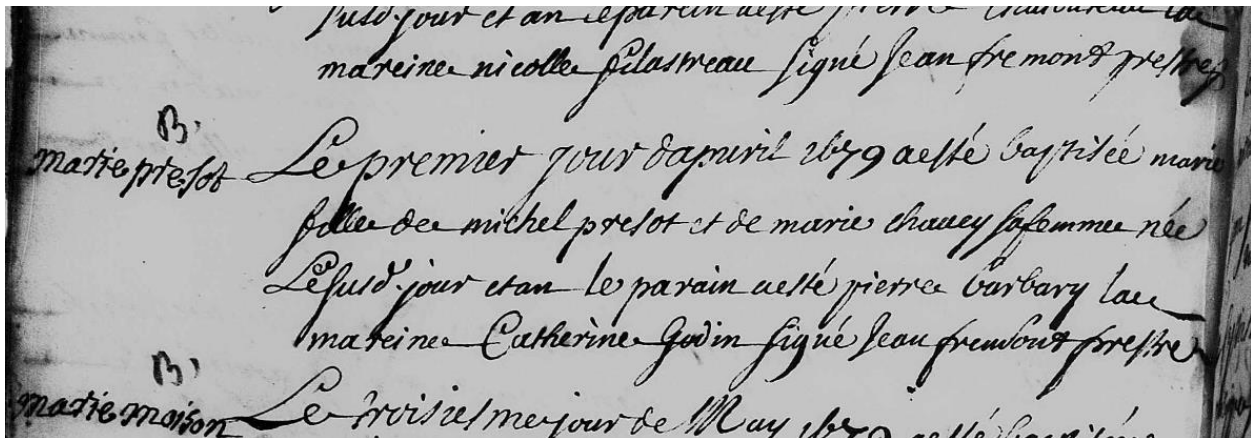 susd. jour et an le parain a esté pierre
mareine nicolle filastreau signé Jean fremont prestre
B.
marie presot
Le premier jour dapvril 1679 a esté baptisée marie
fille de michel presot et de marie chauvy sa femme née
Le susd. jour et an le parain a esté pierre barbary la
mareine Catherine Godin signé Jean fremont prestre
B.
marie moison
Le troisiesme jour de May 1679 a esté baptisée